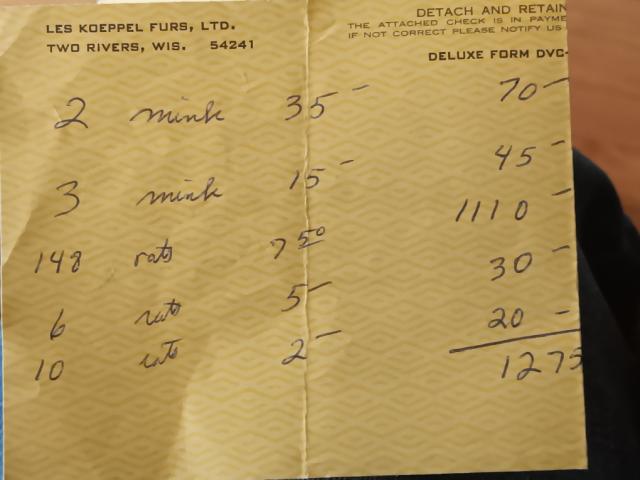 LES KOEPPEL FURS, LTD.
TWO RIVERS, WIS. 54241
DETACH AND RETAIN
THE ATTACHED CHECK IS IN PAYME
IF NOT CORRECT PLEASE NOTIFY US
DELUXE FORM DVC-
2 mink 35 – 70 –
3 mink 15 – 45 –
148 rats 7 50 1110 –
6 rats 5 – 30 –
10 rats 2 – 20 –
1275